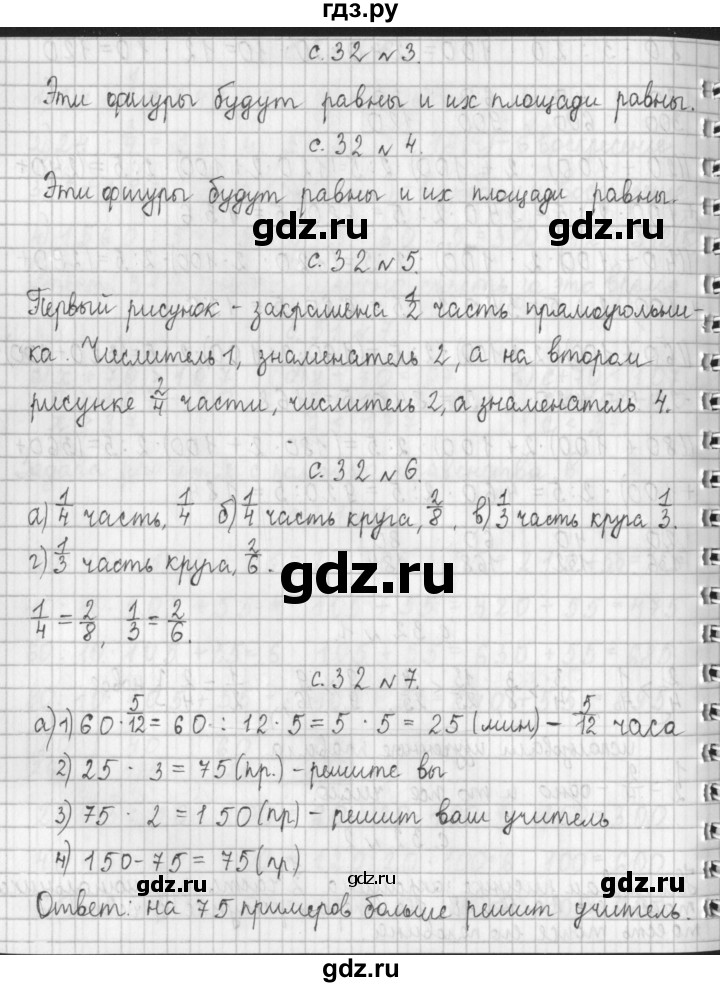 гдз.ру
с. 32 № 3.
Эти фигуры будут равны и их площади равны.
с. 32 № 4.
Эти фигуры будут равны и их площади равны.
gdz.ru gdz.ru
с. 32 № 5.
Первый рисунок - закрашена 1/2 часть прямоугольни-
ка. Числитель 1, знаменатель 2, а на втором
рисунке 2/4 части, числитель 2, а знаменатель 4.
gdz.ru gdz.ru
с. 32 № 6.
а) 1/4 часть, 1/4 б) 1/4 часть круга, 2/8, в) 1/3 часть круга 1/3.
г) 1/3 часть круга, 2/6.
gdz.ru gdz.ru
1/4 = 2/8, 1/3 = 2/6.
с. 32 № 7.
а) 1) 60 · 5/12 = 60 : 12 · 5 = 5 · 5 = 25 (мин) - 5/12 часа
2) 25 · 3 = 75 (пр.) - решите вы
3) 75 · 2 = 150 (пр) - решит ваш учитель
4) 150 - 75 = 75 (пр)
gdz.ru gdz.ru gdz.ru
Ответ: на 75 примеров больше решит учитель.
gdz.ru